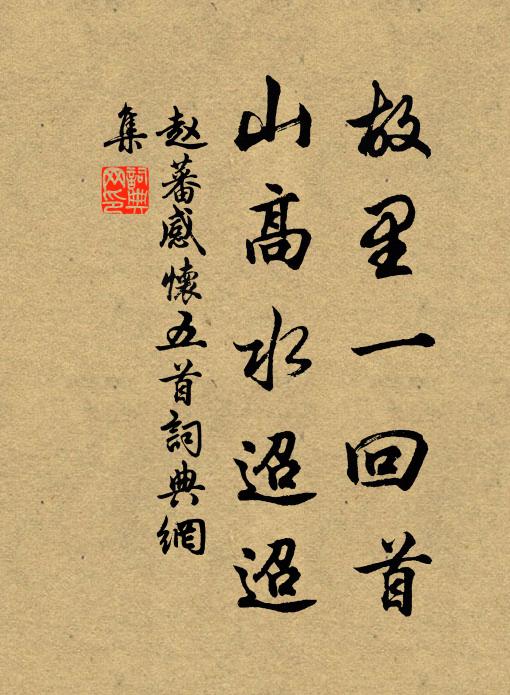 故里一回首
山高水迢迢
赵蕃感懷五首詞典網
集
詞典
网印